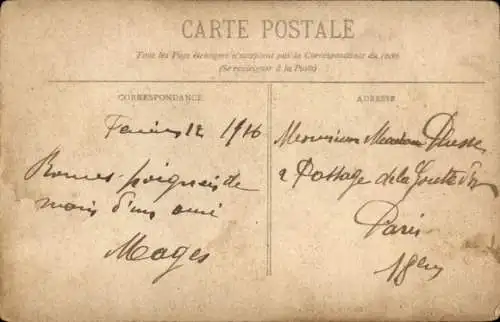 CARTE POSTALE
Tous les Pays étrangers n'acceptent pas la Correspondance du recto
(Se renseigner à la Poste)
CORRESPONDANCE
ADRESSE
12 1916
Bonnes poignées de
main d'un ami
Mages
Monsieur Madame
2 Passage de la Goutte d'Or
Paris
18em